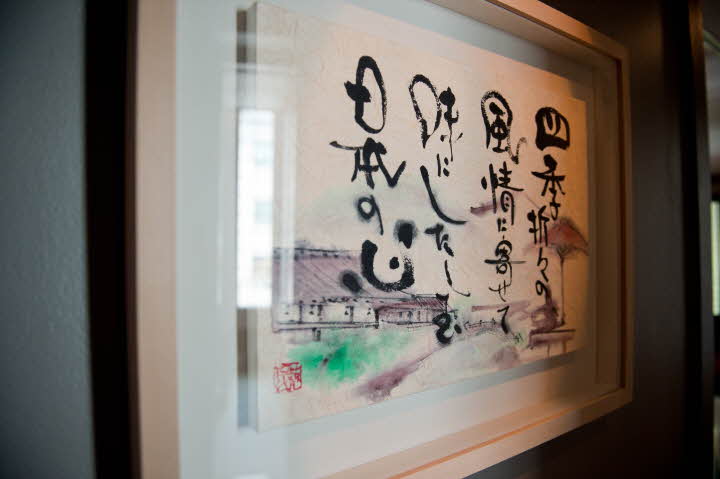 四季折々の
風情に寄せて
味にしたしむ
日本の心